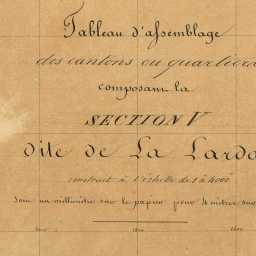 Tableau d'assemblage
des cantons ou quartiers
composant la
SECTION V
dite de La Larda
construit à l'échelle de 1 à 4000
sur le papier pour 4 mètres sur